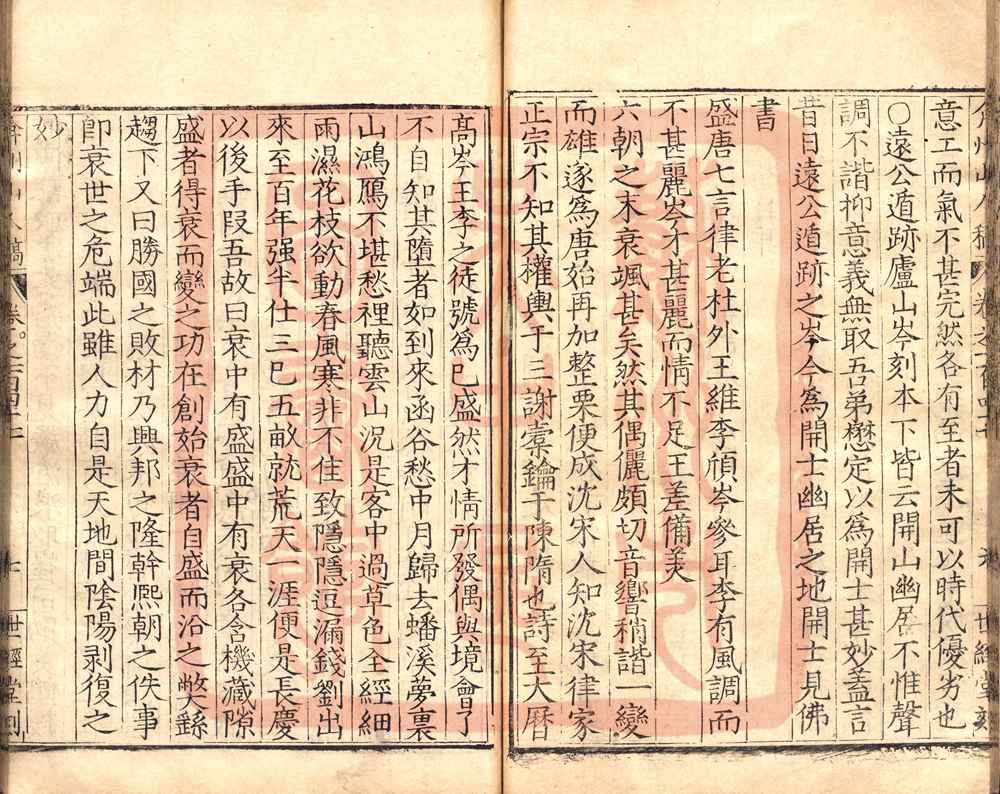 意工而氣不甚完然各有至者未可以時代優劣也
○遠公遁跡廬山岑刻本下皆云開山幽居不惟聲
調不諧抑意義無取吾弟懋定以爲開士甚妙蓋言
昔日遠公遁跡之岑今爲開士幽居之地開士見佛
書
盛唐七言律老杜外王維李頎岑參耳李有風調而
不甚麗岑才甚麗而情不足王差備美
六朝之末衰颯甚矣然其偶儷頗切音響稍諧一變
而雄遂爲唐始再加整栗便成沈宋人知沈宋律家
正宗不知其權輿于三謝橐鑰于陳隋也詩至大曆
高岑王李之徒號爲已盛然才情所發偶與境會了
不自知其墮者如到來函谷愁中月歸去蟠溪夢裏
山鴻鴈不堪愁裡聽雲山況是客中過草色全經細
雨濕花枝欲動春風寒非不佳致隱隱逗漏錢劉出
來至百年强半仕三已五畝就荒天一涯便是長慶
以後手段吾故曰衰中有盛盛中有衰各含機藏隙
盛者得衰而變之功在創始衰者自盛而沿之弊繇
趨下又曰勝國之敗材乃興邦之隆幹熙朝之佚事
卽衰世之危端此雖人力自是天地間陰陽剥復之
妙
七 世經堂刻